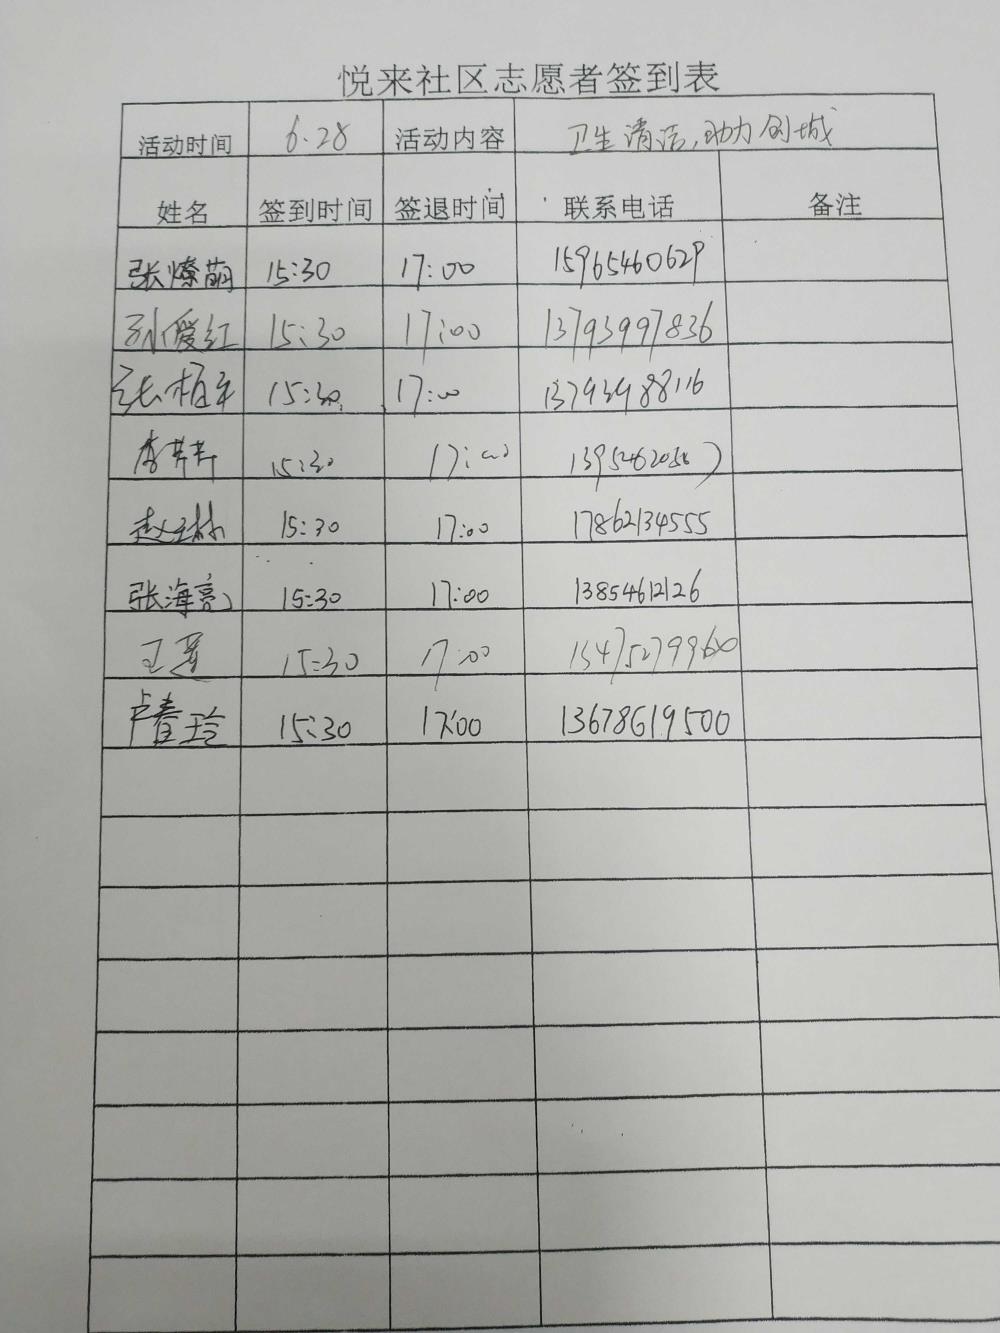 悦来社区志愿者签到表
活动时间 6.28 活动内容 卫生清洁,助力创城
姓名 签到时间 签退时间 联系电话 备注
张燎萌 15:30 17:00 15965460629
孙爱红 15:30 17:00 13793997836
张柏平 15:30 17:00 13793988116
李芹芹 15:30 17:00
赵玉林 15:30 17:00 17862134555
张海亮 15:30 17:00 13854612126
王 15:30 17:00 15475279960
卢春玲 15:30 17:00 13678619500